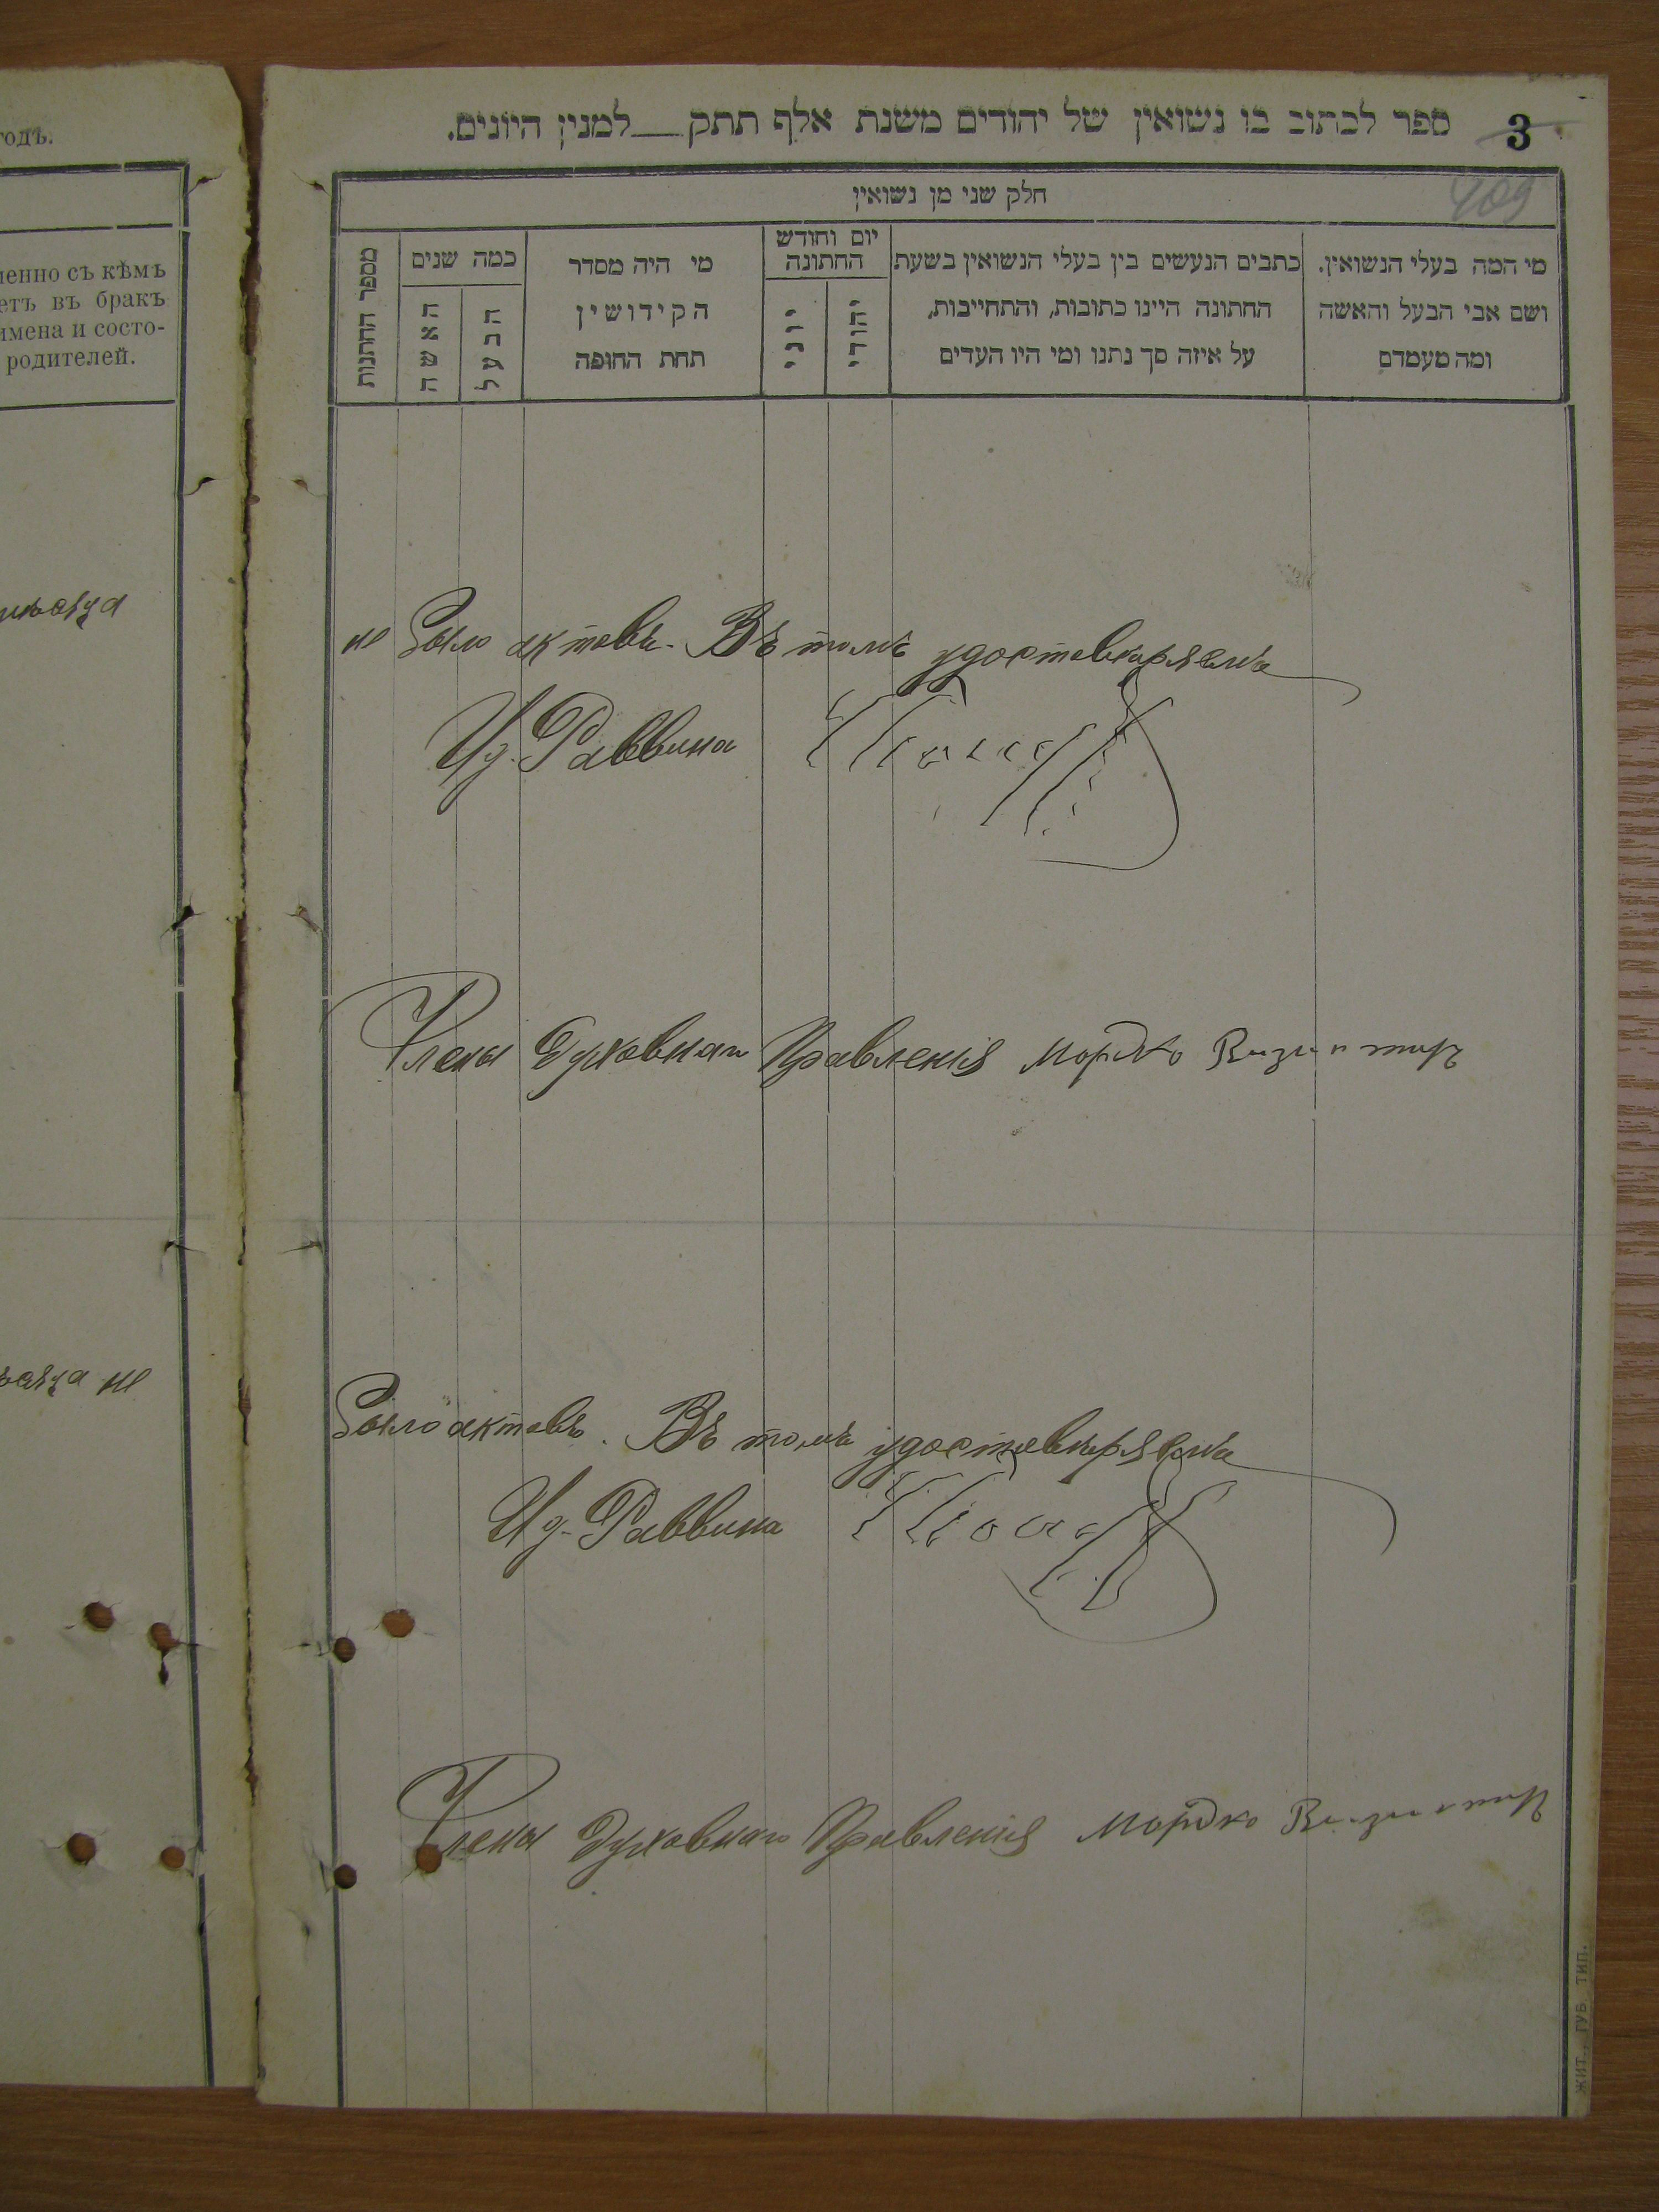 годъ.
менно съ кѣмъ
етъ въ бракъ
имена и состо-
родителей.
мѣсяца
мѣсяца не
3
ספר לכתוב בו נשואין של יהודים משנת אלף תתק למנין היונים.
409
חלק שני מן נשואין
מי המה בעלי הנשואין.
ושם אבי הבעל והאשה
ומה מעמדם
כתבים הנעשים בין בעלי הנשואין בשעת
החתונה היינו כתובות, והתחייבות,
על איזה סך נתנו ומי היו העדים
יום וחודש
החתונה
יהודי
יוני
מי היה מסדר
הקידושין
תחת החופה
כמה שנים
הבעל
האשה
מספר החתנות
не было актовъ. Въ томъ удостовѣряемъ
И д. Раввина
Члены Духовнаго Правленія Мордко
было актовъ. Въ томъ удостовѣряемъ
И д. Раввина
Члены Духовнаго Правленія Мордко
ЖИТ., ГУБ. ТИП.